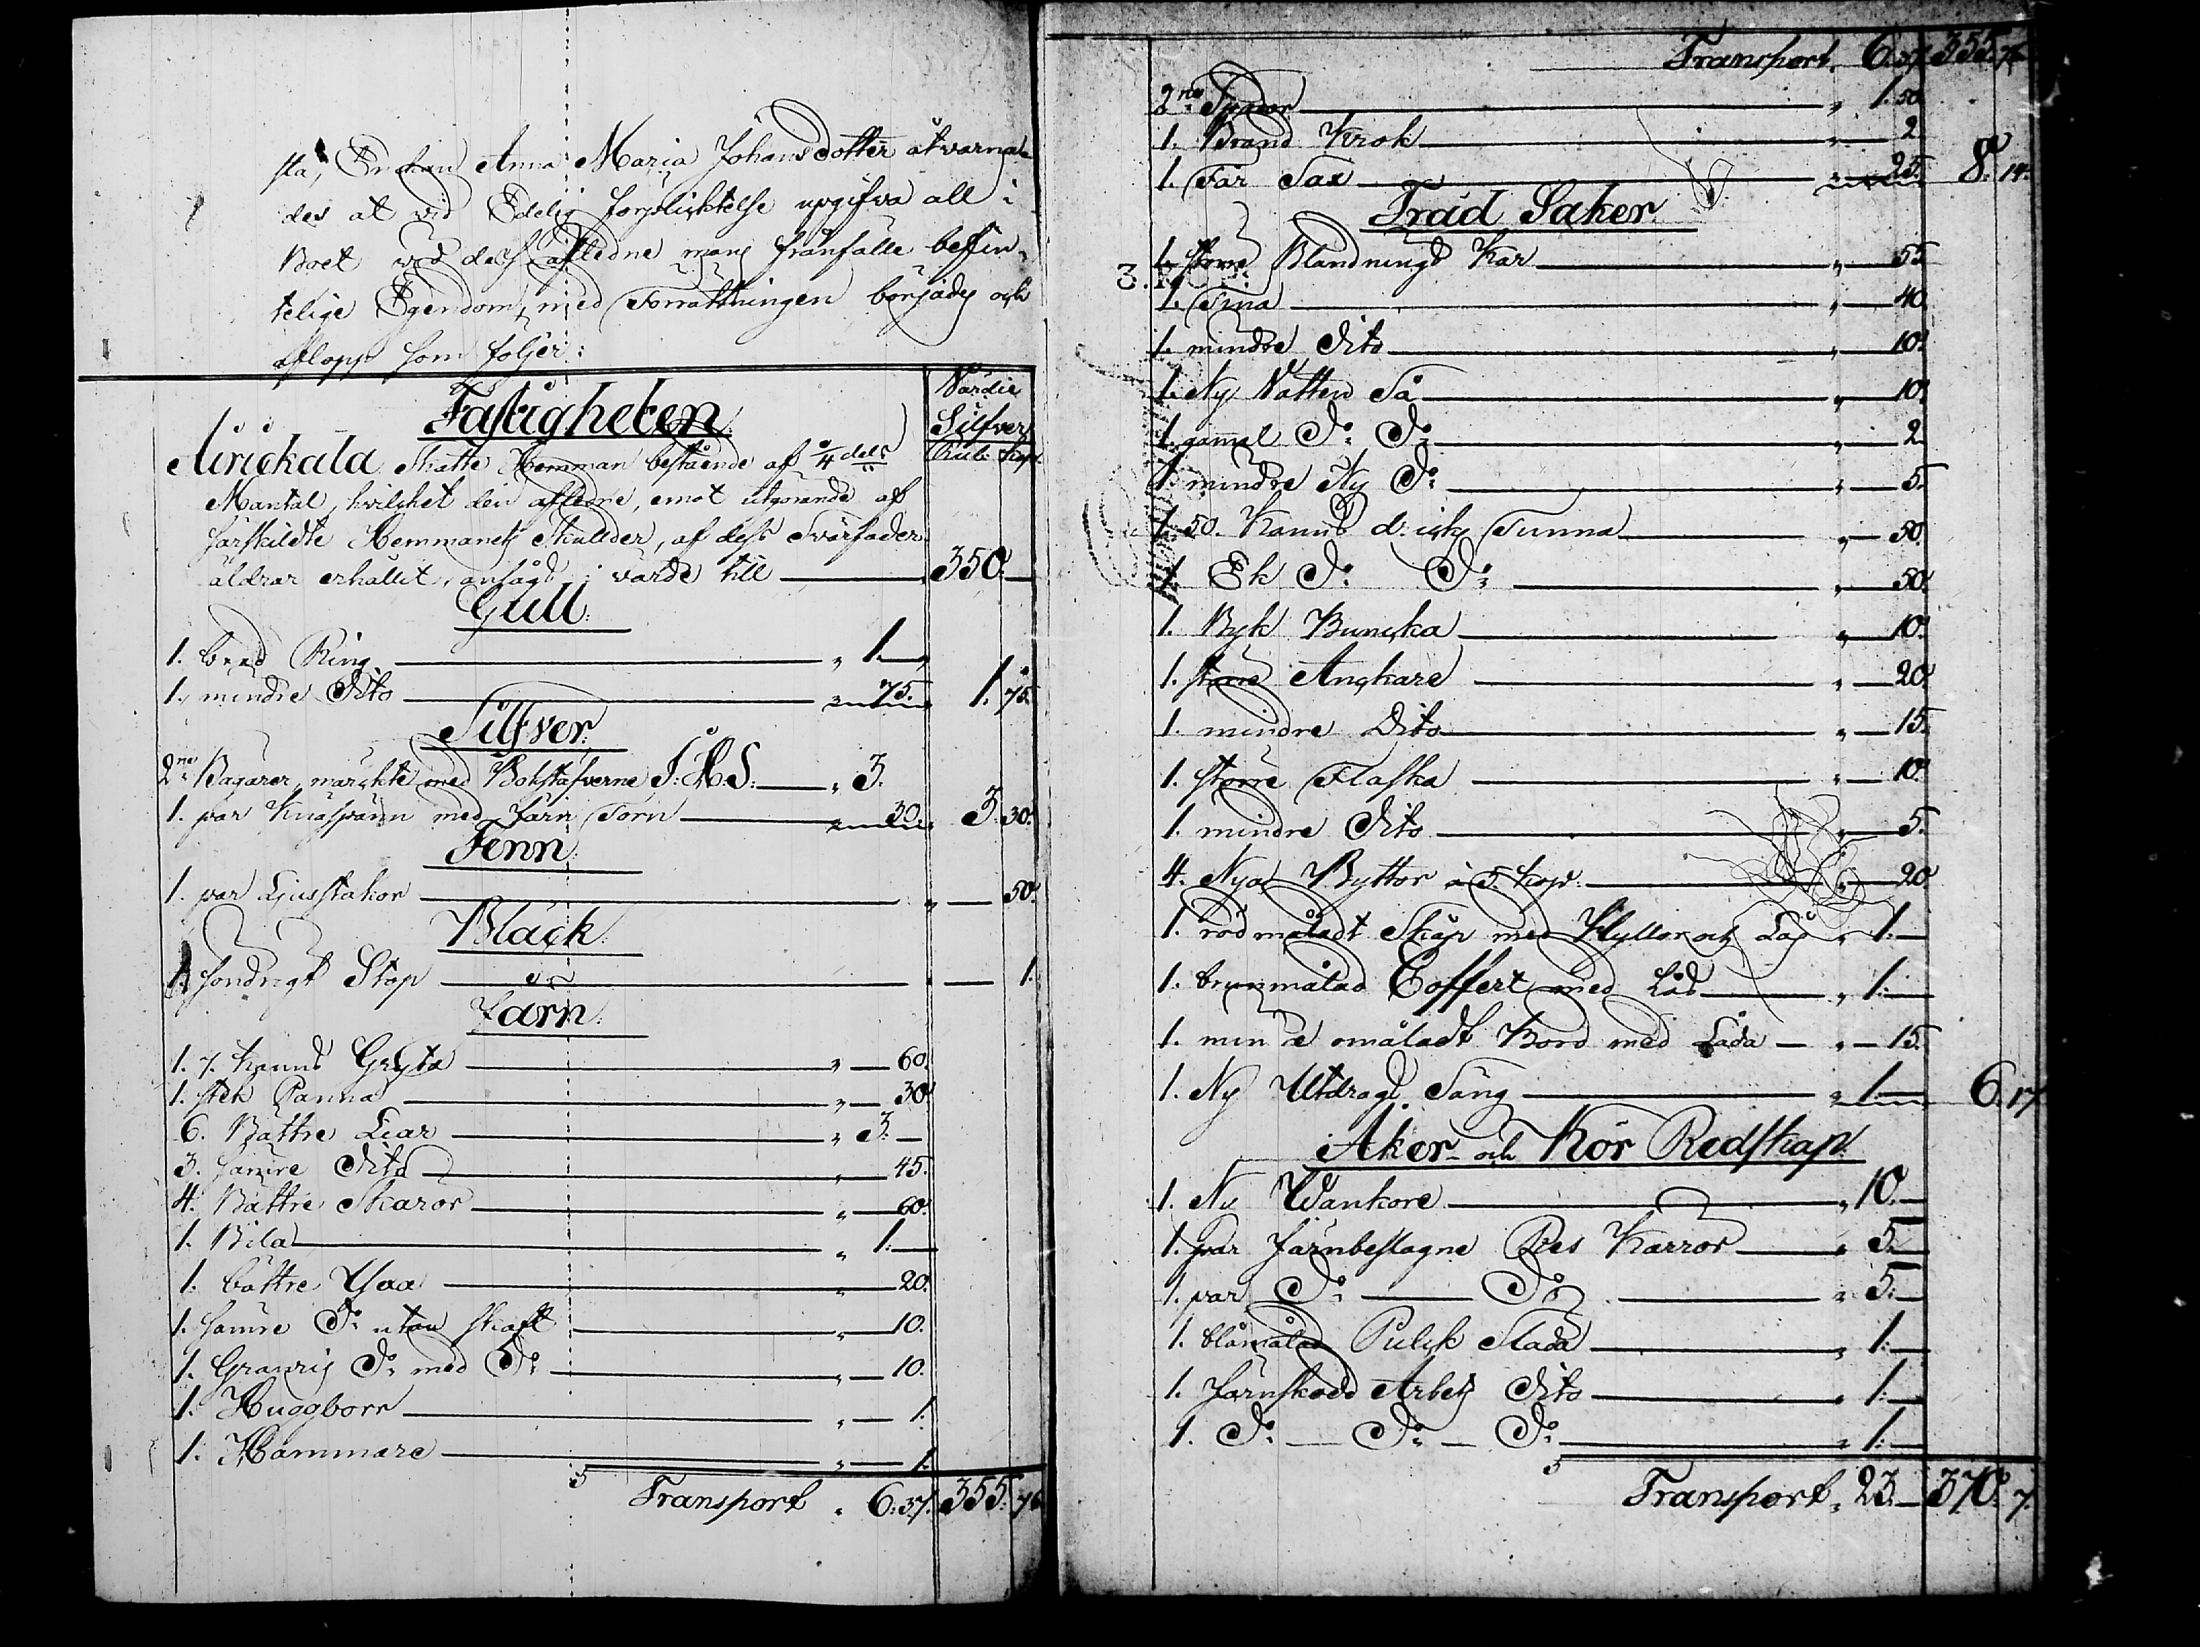 sta, Enckan Anna Maria Johansdotter åtvarna-
des at vid Edelig förpliktelse upgifva all i
Boet vid dess afledne mans frånfälle befin-
telige Egendom, med Förrättningen börjades och
aflopp som följer:
Värdie
Silfver
Rub: Kop:
Fastigheten
Äirickala Skatte Hemman bestående af 1/4 dels
Mantal, hvilcket den afledne, emot utgörande af
särskildte Hemmanets Skulder, af dess Svärfader
äldrar erhållit, ansågs i värde till 350.
Gull:
1. bred Ring " 1.
1. mindre Dito 75. 1. 75.
Silfver:
2ne Bägarer, märckte med Bokstäfverne J: H. S: " 3.
1. par Knäspänn med Järn Törn 30. 3. 30.
Tenn:
1. par Ljusstakor " 50.
Bläck:
1. söndrigt Stop " 1.
Järn:
1. 7. Kanns Gryta " 60.
1. stek Panna " 30.
6. Bättre Liar " 3.
3. sämre Dito " 45.
4. Bättre Skäror " 60.
1. Bila " 1:
1. bättre Yxa " 20.
1. sämre Do utan skaft " 10.
1. Granris Do med Do " 10.
1. Huggborr " 1.
1. Hammare " 1.
Transport " 6:37. 355: 76
Transport. 6:37 355. 76
2ne " 1:50
1. Brand Krok " 2.
1. Får Sax 25. 8. 14.
Träd Saker:
1. större Blandnings Kar " 55
1. Tina " 40.
1. mindre Dito " 10.
1. Ny Vatten Så " 10.
1. gammal Do Do " 2.
1. mindre Ny Do " 5.
1. 50. Kanns Tunna " 50.
1. Ek Do Do " 50.
1. Byk Buncka " 10.
1. större Anckare " 20.
1. mindre Dito " 15.
1. större Flaska " 10.
1. mindre Dito " 5.
4. Nya Byttor à 5. kop: " 20
1. rödmåladt Skåp med Hyllor och Lås " 1.
1. brunmålad Coffert med Lås " 1.
1. mindre omåladt Bord med Låda " 15.
1. Ny Utdrags Säng " 1. 6. 17
Åker- och Kör Redskap:
1. Ny Wankore " 10.
1. par Järnbeslagne Ries Kärror " 5.
1. par Do Do " 5.
1. blåmålad Pulck Släda " 1:
1. Järnskodd Arbets Dito " 1.
1. Do Do Do " 1.
Transport " 23. 370. 7.